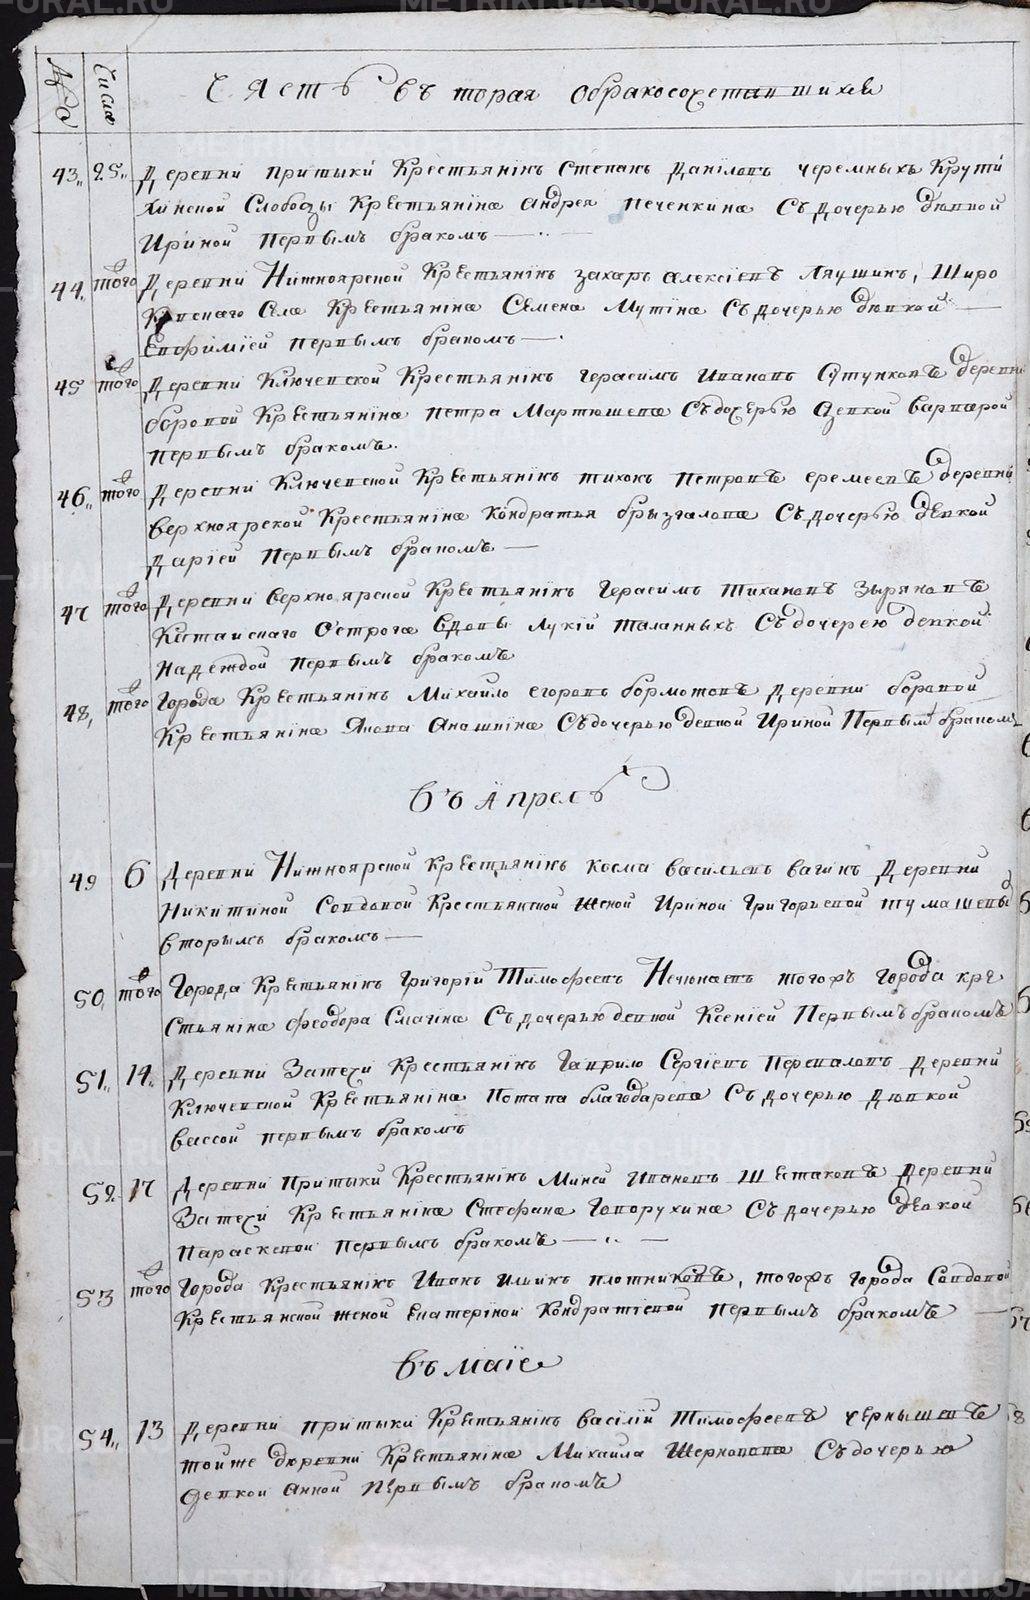 METRIKI.GASO-URAL.RU
Числа
Часть вторая обракосочетавшихся
43. 25. Деревни притыки Крестьянинъ Степанъ Данїловъ черемныхъ Крути
хинской Слободы Крестьянина андрея печенкина Съ дочерью дѣвкой
Ириной первымъ бракомъ
44. того Деревни Нижноярской Крестьянинъ захаръ алексіевъ Ляушинъ, Широ
ковскаго Села Крестьянина Семена Мутина Съ дочерью дѣвкой
Евфиміей первымъ бракомъ
45 того Деревни Ключевской Крестьянинъ герасимъ ивановъ Сутунковъ деревни
боровой Крестьянина петра Мартюшева Съ дочерью девкой варварой
первымъ бракомъ.
46. того Деревни Ключевской Крестьянинъ тихонъ петровъ еремеевъ деревни
верхноярской Крестьянина Кондратья брызгалова Съ дочерью девкой
даріей первымъ бракомъ
47 того Деревни верхноярской Крестьянинъ герасимъ тихановъ зыряновъ
Катайскаго Острога вдовы лукїи таланныхъ Съ дочерею девкой
надеждой первымъ бракомъ
48, того города Крестьянинъ Михайло егоровъ бормотовъ деревни боровой
Крестьянина Якова Аношина Съ дочерью девкой Ириной первымъ бракомъ
въ Апреле
49 6 Деревни Нижноярской крестьянинъ косма васильевъ вагинъ Деревни
Никитиной Совдовой Крестьянской женой Ириной григорьевой тумашевы
вторымъ бракомъ
50, того города Крестьянинъ григорій Тимофеевъ Нечюнаевъ тогожъ города кре
стьянина феодора Смагина Съ дочерью девкой Ксеніей первымъ бракомъ
51. 14. Деревни Затечи Крестьянинъ гаврило Сергіевъ Переваловъ деревни
Ключевской Крестьянина Потапа благодарева Съ дочерью дѣвкой
вассой первымъ бракомъ
52. 17 Деревни Притыки Крестьянинъ Миней ивановъ Шестаковъ деревни
Затечи Крестьянина Стефана Говорухина Съ дочерью девкой
параскевой первымъ бракомъ
53 того города Крестьянинъ Иванъ ильинъ плотниковъ, тогожъ города Совдовой
Крестьянской женой Екатериной Кондратіевой первымъ бракомъ
въ маїе
54. 13 деревни притыки Крестьянинъ василїй Тимофеевъ чернышевъ
тойже деревни Крестьянина Михаила Шерновова Съ дочерью
девкой анной первымъ бракомъ
METRIKI.GASO-URAL.RU